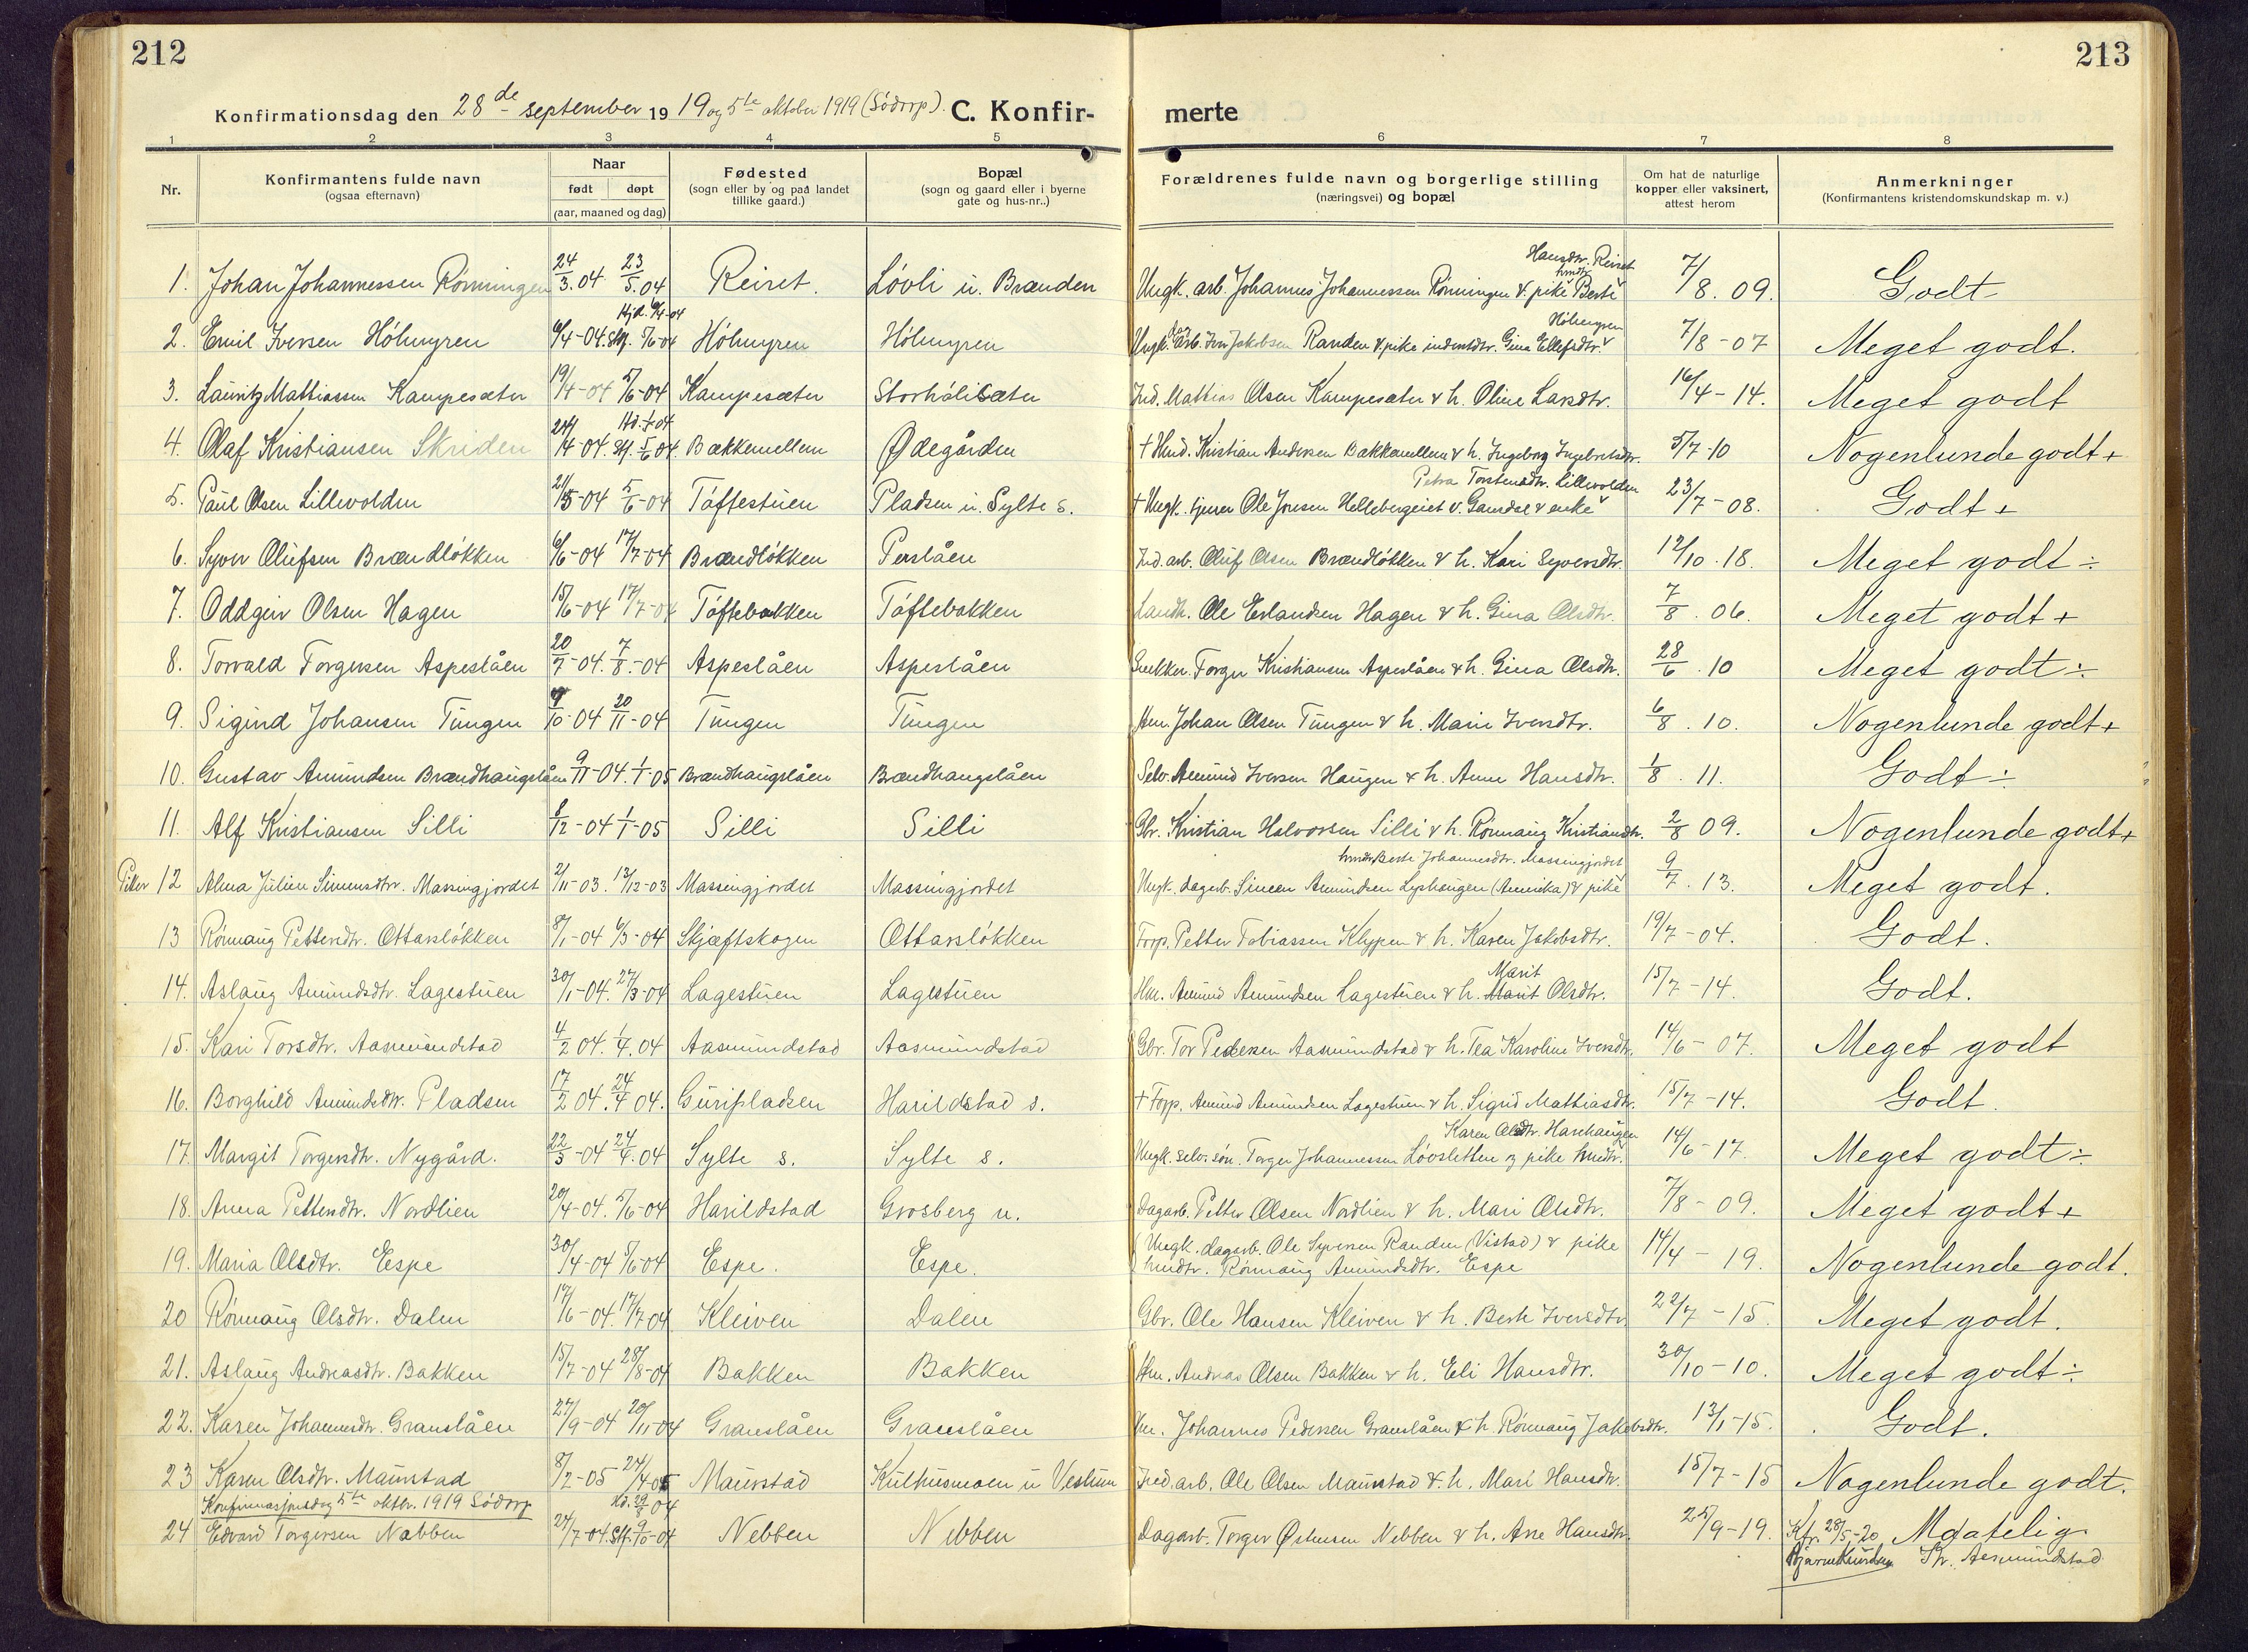 212
213
Konfirmationsdag den 28de september 1919 og 5te oktober 1919 (Södorp). C. Konfir-
merte
1 2 3 4 5 6 7 8
Nr. Konfirmantens fulde navn (ogsaa efternavn) Naar født døpt (aar, maaned og dag) Fødested (sogn eller by og paa landet tillike gaard.) Bopæl (sogn og gaard eller i byerne gate og hus-nr..) Forældrenes fulde navn og borgerlige stilling (næringsvei) og bopæl Om hat de naturlige kopper eller vaksinert, attest herom Anmerkninger (Konfirmantens kristendomskundskap m. v.)
1. Johan Johannessen Rönningen 24/3.04 23/5.04 Reiset. Lövli u. Brænden Ungk. arb. Johannes Johannessen Rönningen & pike hmdtr. Berte Hansdtr. Reiset 7/8.09. Godt
2. Emil Iversen Hölmyren 6/4-04. Hjd. 6/4-04 Stf. 5/6-04 Hölmyren Hölmyren Ungk. arb. Iver Jakobsen Randen & pike inderstdtr. Gina Ellefsdtr. Hölmyren 7/8-07 Meget godt.
3. Lauritz Mattiassen Kampesæter 19/4-04 5/6-04 Kampesæter Storhölisæter Ind. Mattias Olsen Kampesæter & h. Oline Larsdtr. 16/4-14. Meget godt
4. Olaf Kristiansen Skriden 24/4-04. Stf. 5/6 04. Bækkemellem Ødegården + Hmd. Kristian Andersen Bækkemellem & h. Ingeborg Ingebretsdtr. 5/7-10 Nogenlunde godt+
5. Paul Olsen Lillevolden 21/5-04 5/6-04 Töftestuen Pladsen u. Sylte s. + Ungk. tjener Ole Jonsen Hellebergeiet v. Gausdal & enke Petra Torstensdtr. Lillevolden 23/7-08. Godt +
6. Syver Olufsen Brændlökken 6/6-04 17/7-04 Brændlökken Perslåen Ind. arb. Oluf Olsen Brændlökken & h. Kari Syversdtr. 12/10.18. Meget godt ÷
7. Oddgeir Olsen Hagen 15/6-04 17/7-04 Töftebakken Töftebakken Landh. Ole Erlandsen Hagen & h. Gina Olsdtr. 7/8.06. Meget godt +
8. Torvald Torgersen Aspeslåen 20/7-04. 7/8.-04 Aspeslåen Aspeslåen Snekker Torger Kristiansen Aspeslåen & h. Gina Olsdtr. 28/6.10 Meget godt ÷
9. Sigurd Johansen Tungen 9/10-04 20/11-04 Tungen Tungen Hm. Johan Olsen Tungen & h. Marie Iversdtr. 6/8.10. Nogenlunde godt+
10. Gustav Amundsen Brændhaugslåen 9/11-04. 1/1-05 Brændhaugslåen Brændhaugslåen Selv. Amund Iversen Haugen & h. Anne Hansdtr. 1/8.11. Godt ÷
11. Alf Kristiansen Silli 8/12-04 1/1-05 Silli Silli Gbr. Kristian Halvorsen Silli & h. Rönnaug Kristiansdtr. 2/8 09. Nogenlunde godt+
Piker 12 Alma Juline Simensdtr. Massingjordet 2/11-03. 13/12-03 Massingjordet Massingjordet Ungk. dagarb. Simen Amundsen Lyshaugen (Amerika) & pike hmdtr. Berte Johannesdtr. Massingjordet 9/7.13. Meget godt.
13 Rönnaug Pettersdtr. Ottarslökken 8/1-04 6/3-04 Skjæftskogen Ottarslökken Forp. Petter Tobiassen Klyppen & h. Karen Jakobsdtr. 19/7-04. Godt.
14. Aslaug Amundsdtr. Lagestuen 30/1-04. 27/3-04 Lagestuen Lagestuen Hm. Amund Amundsen Lagestuen & h. Marit Olsdtr. 15/7-14. Godt.
15. Kari Torsdtr. Aasmundstad 4/2 04. 1/4.04 Aasmundstad Aasmundstad Gbr. Tor Pedersen Aasmundstad & h. Tea Karoline Iversdtr. 14/6-07. Meget godt
16. Borghild Amundsdtr. Pladsen 17/2 04. 24/4 04. Guripladsen Harildstad s. + Forp. Amund Amundsen Lagestuen & h. Sigrid Mattiasdtr. 15/7-14. Godt.
17. Margit Torgersdtr. Nygård. 22/3-04 24/4.04 Sylte s. Sylte s. Ungk. selv. sön. Torger Johannessen Lövsletten og pike hmdtr. Karen Olsdtr. Harehaugen 14/6-17. Meget godt ÷
18. Anna Pettersdtr. Nordlien 20/4-04. 5/6-04 Harildstad Grosberg n. Dagarb. Petter Olsen Nordlien & h. Mari Olsdtr. 7/8-09. Meget godt+
19. Maria Olsdtr. Espe 30/4-04 5/6-04 Espe. Espe. Ungk. dagarb. Ole Syversen Randen (Vistad) & pike
hmdtr. Rönnaug Amundsdtr. Espe 14/4-19. Nogenlunde godt.
20 Rönnaug Olsdtr. Dalen 17/6-04. 17/7-04 Kleiven Dalen Gbr. Ole Hansen Kleiven & h. Berte Iversdtr 22/7-15. Meget godt.
21. Aslaug Andreasdtr. Bakken 15/7-04 28/8-04 Bakken Bakken Hm. Andreas Olsen Bakken & h. Eli Hansdtr. 30/10-10. Meget godt ÷
22. Karen Johannesdtr. Granslåen 27/9-04 20/11-04 Granslåen Granslåen Hm. Johannes Pedersen Granslåen & h. Rönnaug Jakobsdtr. 13/1-15. Godt.
23 Karen Olsdtr. Maurstad 8/2-05 24/4-05 Maurstad Kulhusmoen u Vestum Ind. arb. Ole Olsen Maurstad & h. Mari Hansdtr. 15/7-15 Nogenlunde godt.
Konfirmasjonsdag 5te oktbr. 1919 Södorp
24 Edvard Torgersen Nebben 24/7-04. Stf. 9/10-04 Nebben Nebben Dagarb. Torger Østensen Nebben & h. Ane Hansdtr. 25/9-19. Kfr. 28/5-20 Maatelig
Bjarne Knudsen Th. Aasmundstad